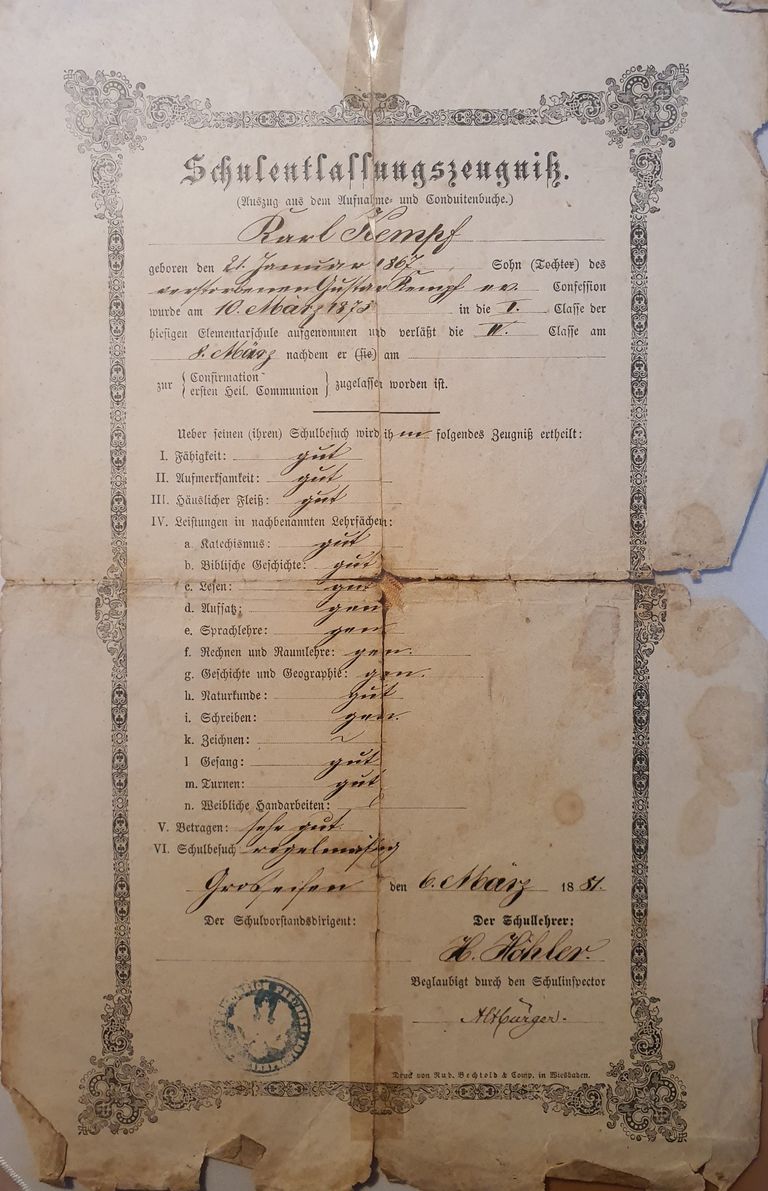 Schulentlassungszeugniß.
(Auszug aus dem Aufnahme- und Conduitenbuche.)
Karl Kempf
geboren den 21. Januar 1867 Sohn (Tochter) des
verstorbenen Gustav Kempf ev. Confession
wurde am 10. März 1873 in die I. Classe der
hiesigen Elementarschule aufgenommen und verläßt die IV. Classe am
8. März nachdem er (sie) am
zur { Confirmation
ersten Heil. Communion } zugelassen worden ist.
Ueber seinen (ihren) Schulbesuch wird ihm folgendes Zeugniß ertheilt:
I. Fähigkeit: gut
II. Aufmerksamkeit: gut
III. Häuslicher Fleiß: gut
IV. Leistungen in nachbenannten Lehrfächen:
a. Katechismus: gut
b. Biblische Geschichte: gut
c. Lesen:
d. Aufsatz: gen
e. Sprachlehre: gen
f. Rechnen und Raumlehre: gen.
g. Geschichte und Geographie: gen.
h. Naturkunde: gut
i. Schreiben: gen.
k. Zeichnen:
l Gesang: gut
m. Turnen: gut
n. Weibliche Handarbeiten:
V. Betragen: sehr gut.
VI. Schulbesuch regelmäsig
Groseifen den 6. März 1881.
Der Schulvorstandsdirigent: Der Schullehrer:
H. Höhler.
Beglaubigt durch den Schulinspector
Altbürger.
Druck von Rud. Bechtold & Comp. in Wiesbaden.